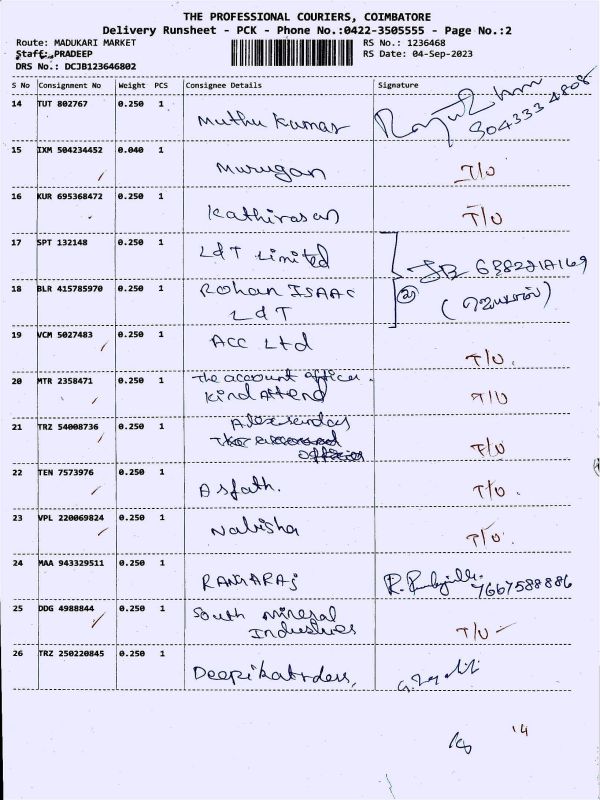 THE PROFESSIONAL COURIERS, COIMBATORE
Delivery Runsheet - PCK - Phone No.:0422-3505555 - Page No.:2
Route: MADUKARI MARKET RS No.: 1236468
Staff: PRADEEP RS Date: 04-Sep-2023
DRS No.: DCJB123646802
S No Consignment No Weight PCS Consignee Details Signature
14 TUT 802767 0.250 1 Muthu Kumar
15 IXM 504234452 0.040 1 Murugan T/O
16 KUR 695368472 0.250 1 Kathirasan T/O
17 SPT 132148 0.250 1 L&T Limited
18 BLR 415785970 0.250 1 Rohan ISAAC
L&T
19 VCM 5027483 0.250 1 ACC Ltd T/O.
20 MTR 2358471 0.250 1 The account officer.
Kind Attend T/O
21 TRZ 54008736 0.250 1 T/O
22 TEN 7573976 0.250 1 Asfath. T/O.
23 VPL 220069824 0.250 1 Nabisha T/O
24 MAA 943329511 0.250 1 RANGARAJ 7667588886
25 DDG 4988844 0.250 1 South mineral
Industries T/O
26 TRZ 250220845 0.250 1
14